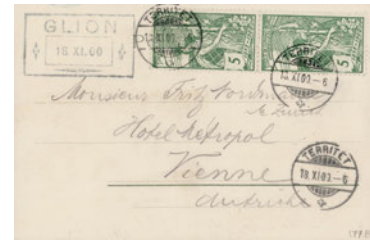 GLION
18.XI.00
TERRITET
18.XI.00—6
5
5
TERRITET
18.XI.00—6
Monsieur Fritz
Hotel Métropol
Vienne
Autriche
TERRITET
18.XI.00—6